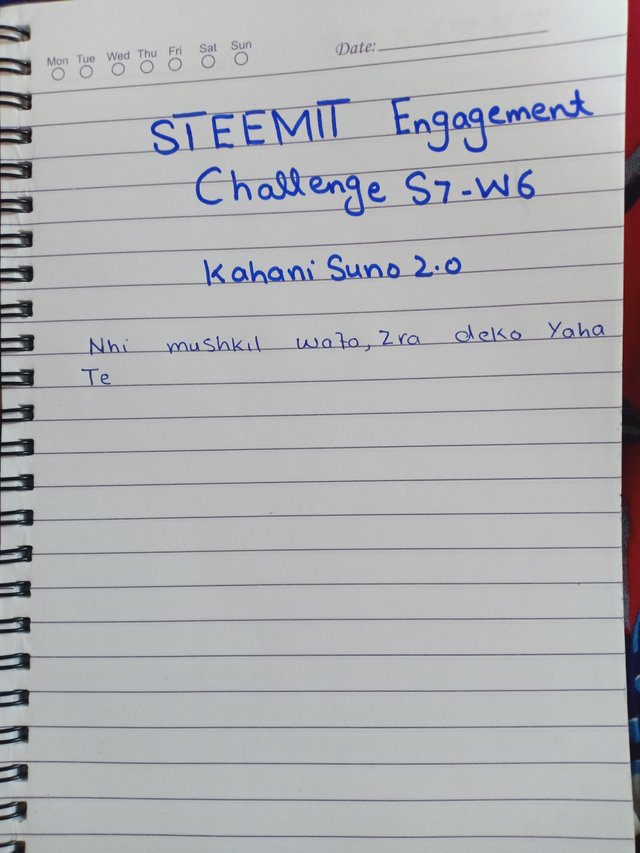 Mon Tue Wed Thu Fri Sat Sun
Date:
STEEMIT Engagement
Challenge S7-W6
Kahani Suno 2.0
Nhi mushkil wafa, Zra deko Yaha
Te